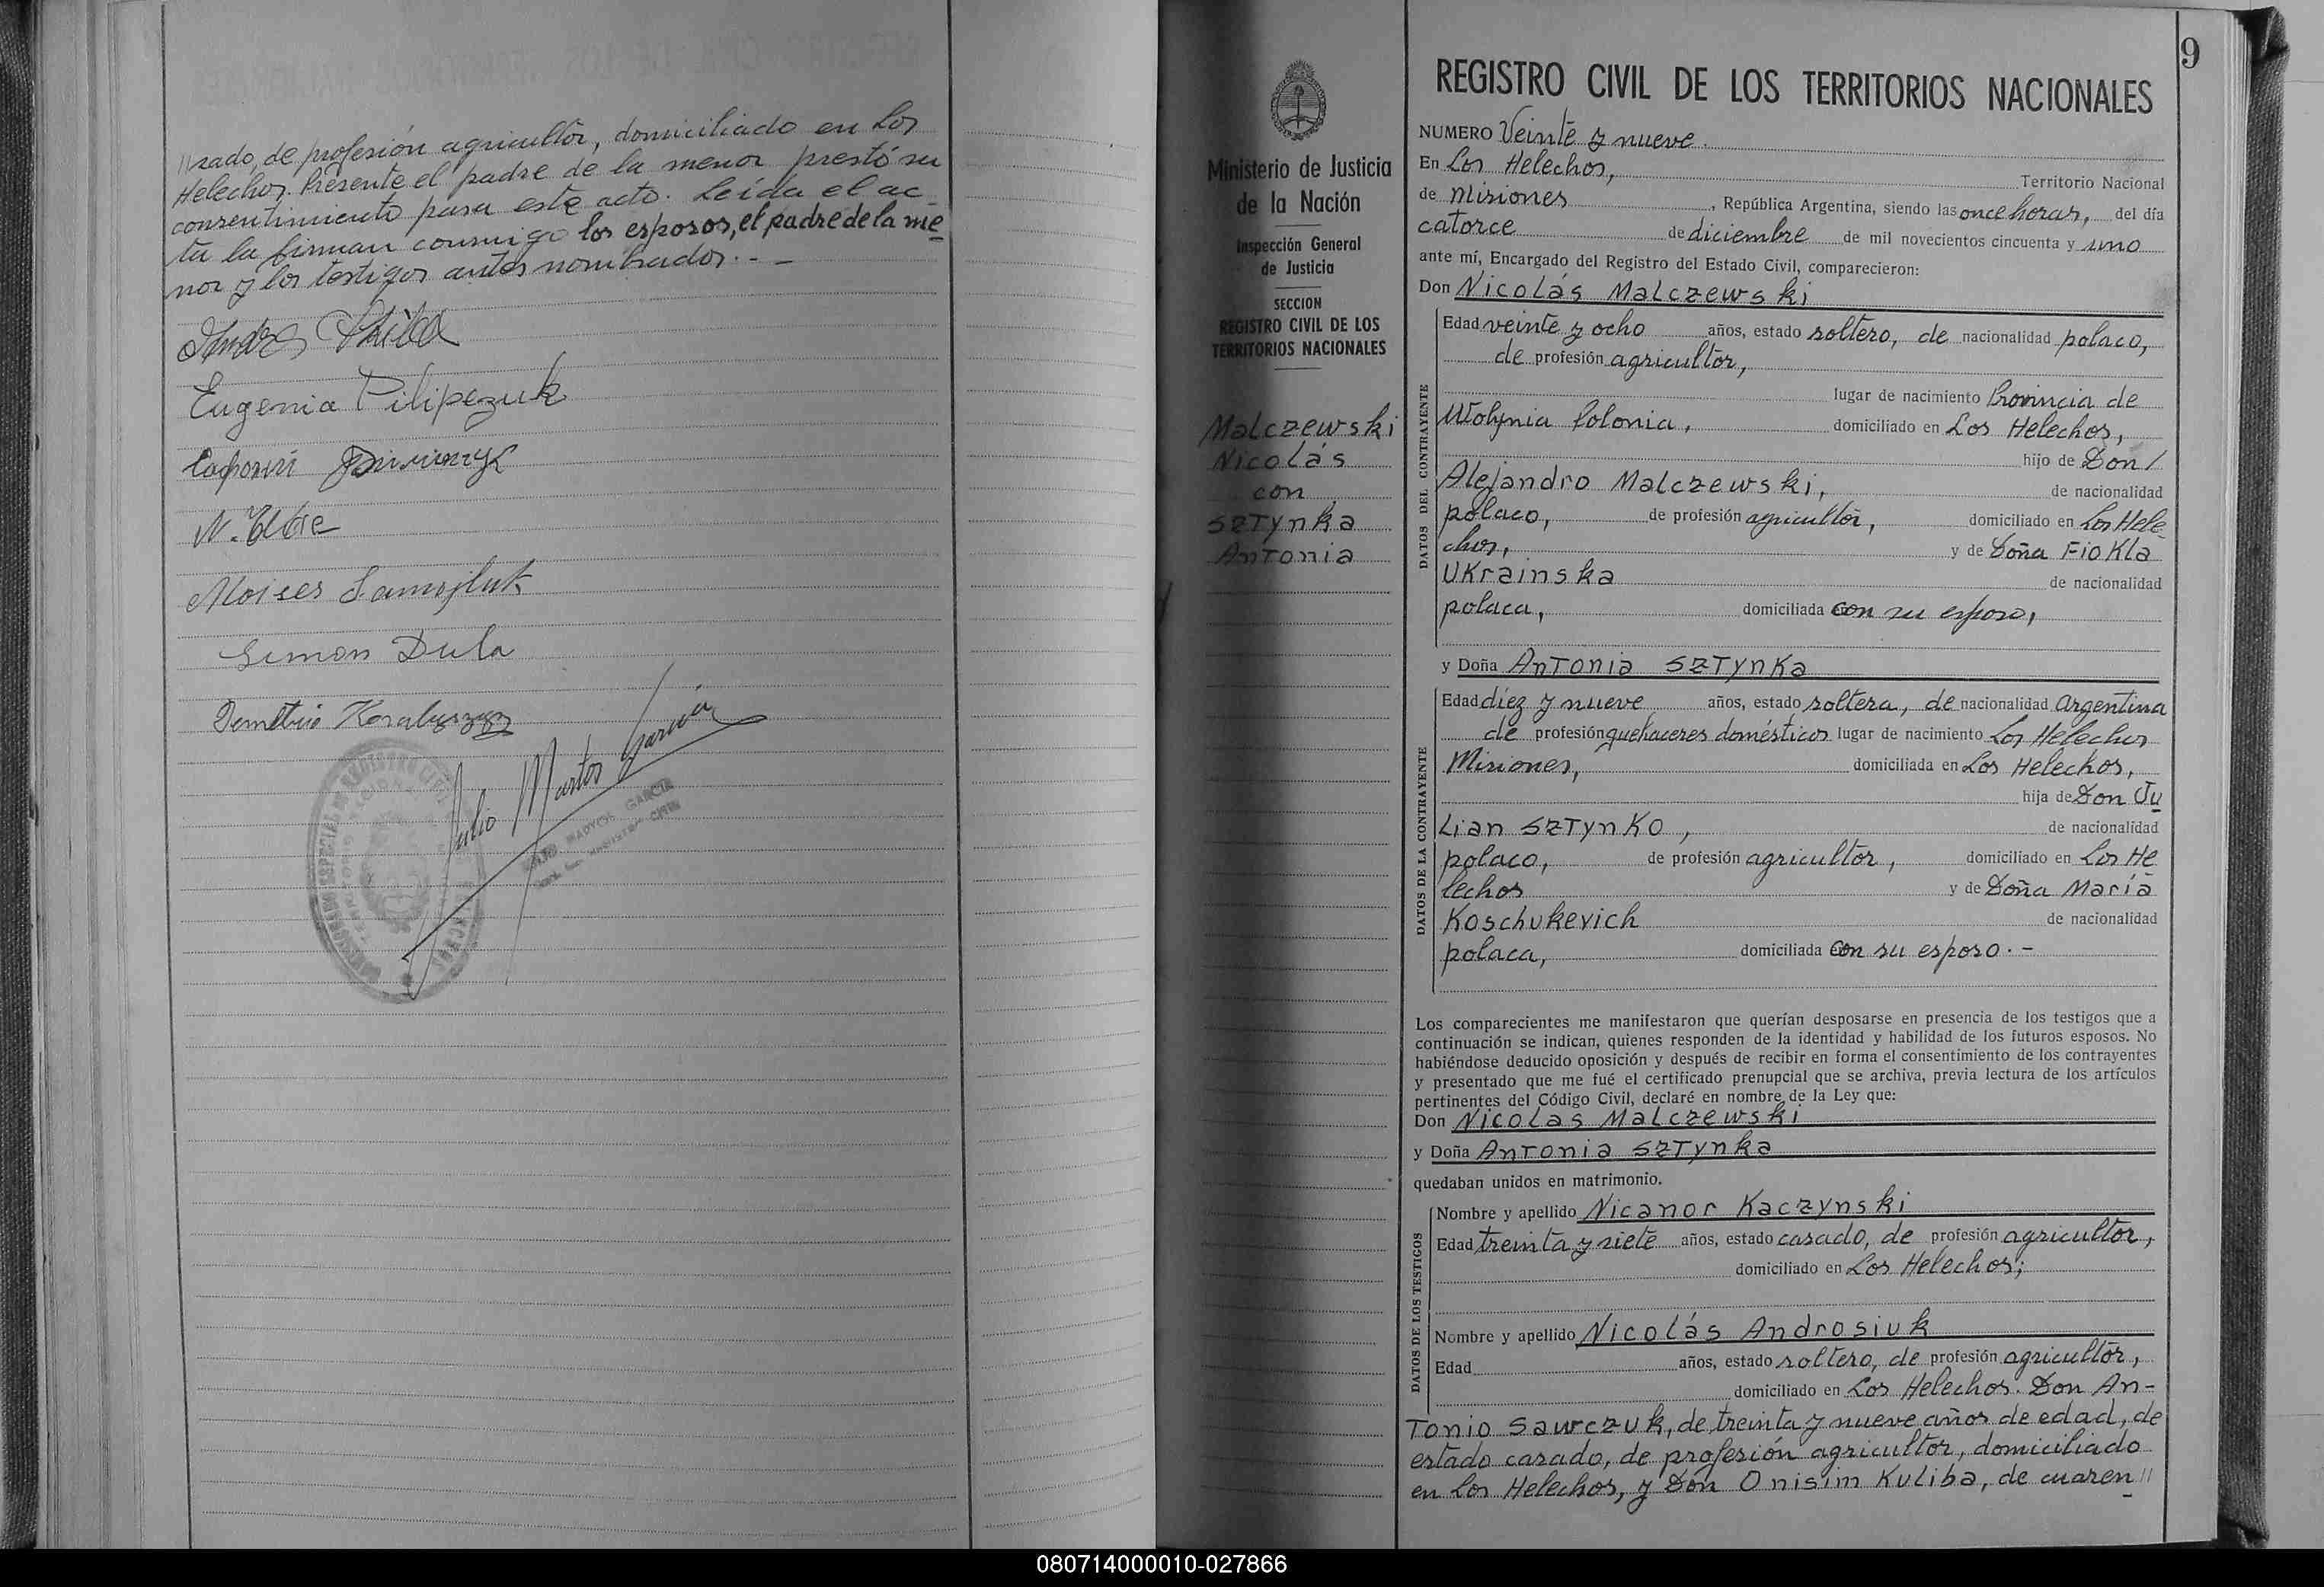 //sado, de profesión agricultor, domiciliado en Los
Helechos. Presente el padre de la menor prestó su
consentimiento para este acto. Leída el ac_
ta la firman conmigo los esposos, el padre de la me_
nor y los testigos antes nombrados.- _
Eugenia Pilipczuk
Moises Samojluk
Simon Dula
Demetrio
Julio Martos Garcia
GARCIA
9
Ministerio de Justicia
de la Nación
Inspección General
de Justicia
SECCION
REGISTRO CIVIL DE LOS
TERRITORIOS NACIONALES
Malczewski
Nicolás
con
Sztynka
Antonia
REGISTRO CIVIL DE LOS TERRITORIOS NACIONALES
NUMERO Veinte y nueve.
En Los Helechos, Territorio Nacional
de Misiones, República Argentina, siendo las once horas, del día
catorce de diciembre de mil novecientos cincuenta y uno
ante mí, Encargado del Registro del Estado Civil, comparecieron:
Don Nicolás Malczewski
DATOS DEL CONTRAYENTE
Edad veinte y ocho años, estado soltero, de nacionalidad polaco,
de profesión agricultor,
lugar de nacimiento Provincia de
Wolynia Polonia, domiciliado en Los Helechos,
hijo de Don /
Alejandro Malczewski, de nacionalidad
polaco, de profesión agricultor, domiciliado en Los Hele_
chos, y de Doña Fiokla
Ukrainska de nacionalidad
polaca, domiciliada con su esposo,
y Doña Antonia Sztynka
DATOS DE LA CONTRAYENTE
Edad diez y nueve años, estado soltera, de nacionalidad Argentina
de profesión quehaceres domésticos lugar de nacimiento Los Helechos
Misiones, domiciliada en Los Helechos,
hija de Don Ju
lian Sztynko, de nacionalidad
polaco, de profesión agricultor, domiciliado en Los He
lechos y de Doña María
Koschukevich de nacionalidad
polaca, domiciliada con su esposo.-
Los comparecientes me manifestaron que querían desposarse en presencia de los testigos que a
continuación se indican, quienes responden de la identidad y habilidad de los futuros esposos. No
habiéndose deducido oposición y después de recibir en forma el consentimiento de los contrayentes
y presentado que me fué el certificado prenupcial que se archiva, previa lectura de los artículos
pertinentes del Código Civil, declaré en nombre de la Ley que:
Don Nicolas Malczewski
y Doña Antonia Sztynka
quedaban unidos en matrimonio.
DATOS DE LOS TESTIGOS
Nombre y apellido Nicanor Kaczynski
Edad treinta y siete años, estado casado, de profesión agricultor,
domiciliado en Los Helechos;
Nombre y apellido Nicolás Androsiuk
Edad años, estado soltero, de profesión agricultor,
domiciliado en Los Helechos. Don An-
tonio Sawczuk, de treinta y nueve años de edad, de
estado casado, de profesión agricultor, domiciliado
en Los Helechos, y Don Onisim Kuliba, de cuaren//
080714000010-027866